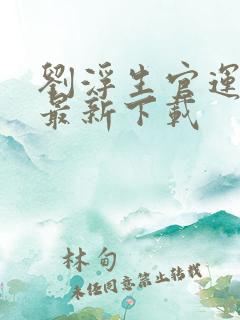 劉浮生官運
最新下載
林甸
未经同意禁止转载